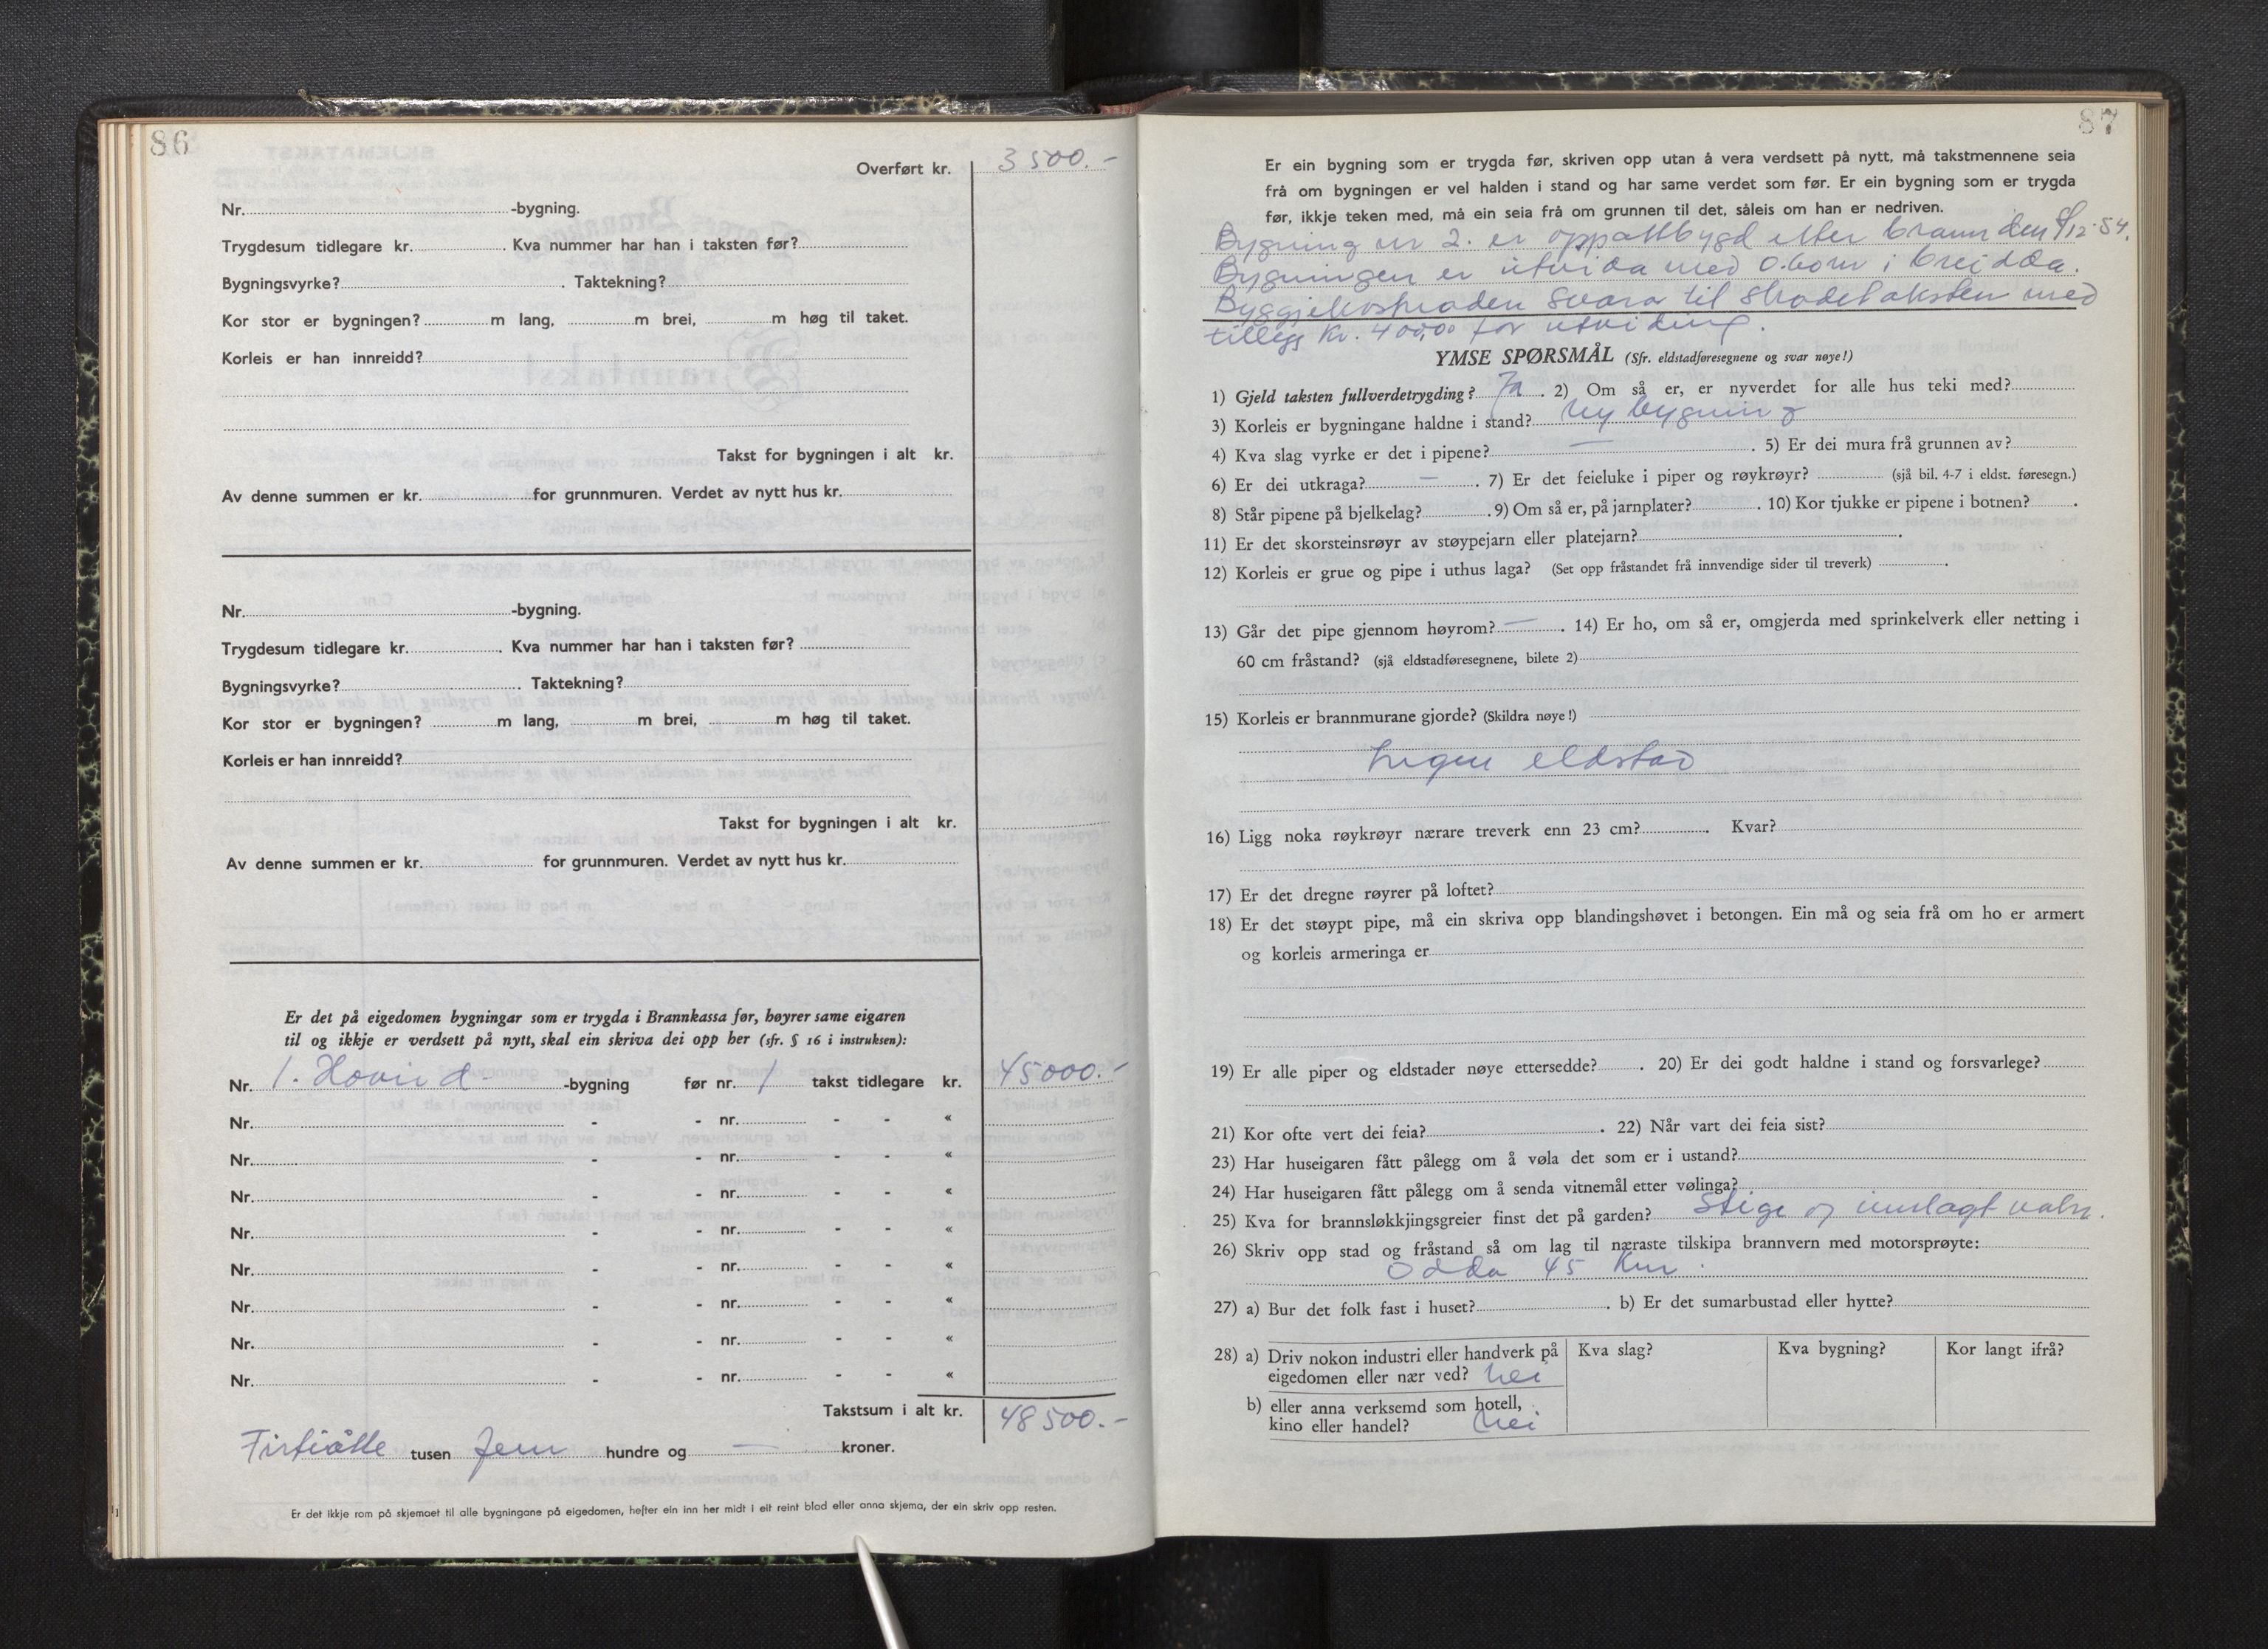 86
Overført kr. 3 500.-
Nr. -bygning.
Trygdesum tidlegare kr. . Kva nummer har han i taksten før?
Bygningsvyrke? . Taktekning?
Kor stor er bygningen? m lang, m brei, m høg til taket.
Korleis er han innreidd?
Takst for bygningen i alt kr.
Av denne summen er kr. for grunnmuren. Verdet av nytt hus kr.
Nr. -bygning.
Trygdesum tidlegare kr. . Kva nummer har han i taksten før?
Bygningsvyrke? . Taktekning?
Kor stor er bygningen? m lang, m brei, m høg til taket.
Korleis er han innreidd?
Takst for bygningen i alt kr.
Av denne summen er kr. for grunnmuren. Verdet av nytt hus kr.
Er det på eigedomen bygningar som er trygda i Brannkassa før, høyrer same eigaren
til og ikkje er verdsett på nytt, skal ein skriva dei opp her (sfr. § 16 i instruksen):
Nr. 1. Hovud- -bygning før nr. 1 takst tidlegare kr. 45000.-
Nr. - - nr. - - «
Nr. - - nr. - - «
Nr. - - nr. - - «
Nr. - - nr. - - «
Nr. - - nr. - - «
Nr. - - nr. - - «
Nr. - - nr. - - «
Nr. - - nr. - - «
Takstsum i alt kr. 48500.-
Firtiåtte tusen fem hundre og — kroner.
Er det ikkje rom på skjemaet til alle bygningane på eigedomen, hefter ein inn her midt i eit reint blad eller anna skjema, der ein skriv opp resten.
87
Er ein bygning som er trygda før, skriven opp utan å vera verdsett på nytt, må takstmennene seia
frå om bygningen er vel halden i stand og har same verdet som før. Er ein bygning som er trygda
før, ikkje teken med, må ein seia frå om grunnen til det, såleis om han er nedriven.
Bygning nr 2. er oppattbygd etter brann den /12-54.
Bygningen er utvida med 0.60 m i breidda.
Byggjekostnaden svara til skadetaksten med
tillegg kr. 400,00 for utviding.
YMSE SPØRSMÅL (Sfr. eldstadføresegnene og svar nøye!)
1) Gjeld taksten fullverdetrygding? Ja . 2) Om så er, er nyverdet for alle hus teki med?
3) Korleis er bygningane haldne i stand? Ny bygning
4) Kva slag vyrke er det i pipene? — . 5) Er dei mura frå grunnen av?
6) Er dei utkraga? — . 7) Er det feieluke i piper og røykrøyr? (sjå bil. 4-7 i eldst. føresegn.)
8) Står pipene på bjelkelag? . 9) Om så er, på jarnplater? . 10) Kor tjukke er pipene i botnen? .
11) Er det skorsteinsrøyr av støypejarn eller platejarn? .
12) Korleis er grue og pipe i uthus laga? (Set opp fråstandet frå innvendige sider til treverk) .
13) Går det pipe gjennom høyrom? — . 14) Er ho, om så er, omgjerda med sprinkelverk eller netting i
60 cm fråstand? (sjå eldstadføresegnene, bilete 2)
15) Korleis er brannmurane gjorde? (Skildra nøye!)
Ingen eldstad
16) Ligg noka røykrøyr nærare treverk enn 23 cm? . Kvar?
17) Er det dregne røyrer på loftet?
18) Er det støypt pipe, må ein skriva opp blandingshøvet i betongen. Ein må og seia frå om ho er armert
og korleis armeringa er
19) Er alle piper og eldstader nøye ettersedde? . 20) Er dei godt haldne i stand og forsvarlege?
21) Kor ofte vert dei feia? . 22) Når vart dei feia sist?
23) Har huseigaren fått pålegg om å vøla det som er i ustand?
24) Har huseigaren fått pålegg om å senda vitnemål etter vølinga?
25) Kva for brannsløkkjingsgreier finst det på garden? Stige og innlagt vatn.
26) Skriv opp stad og fråstand så om lag til næraste tilskipa brannvern med motorsprøyte:
Odda 45 km.
27) a) Bur det folk fast i huset? . b) Er det sumarbustad eller hytte?
28) a) Driv nokon industri eller handverk på Kva slag? Kva bygning? Kor langt ifrå?
eigedomen eller nær ved? Nei
b) eller anna verksemd som hotell,
kino eller handel? Nei